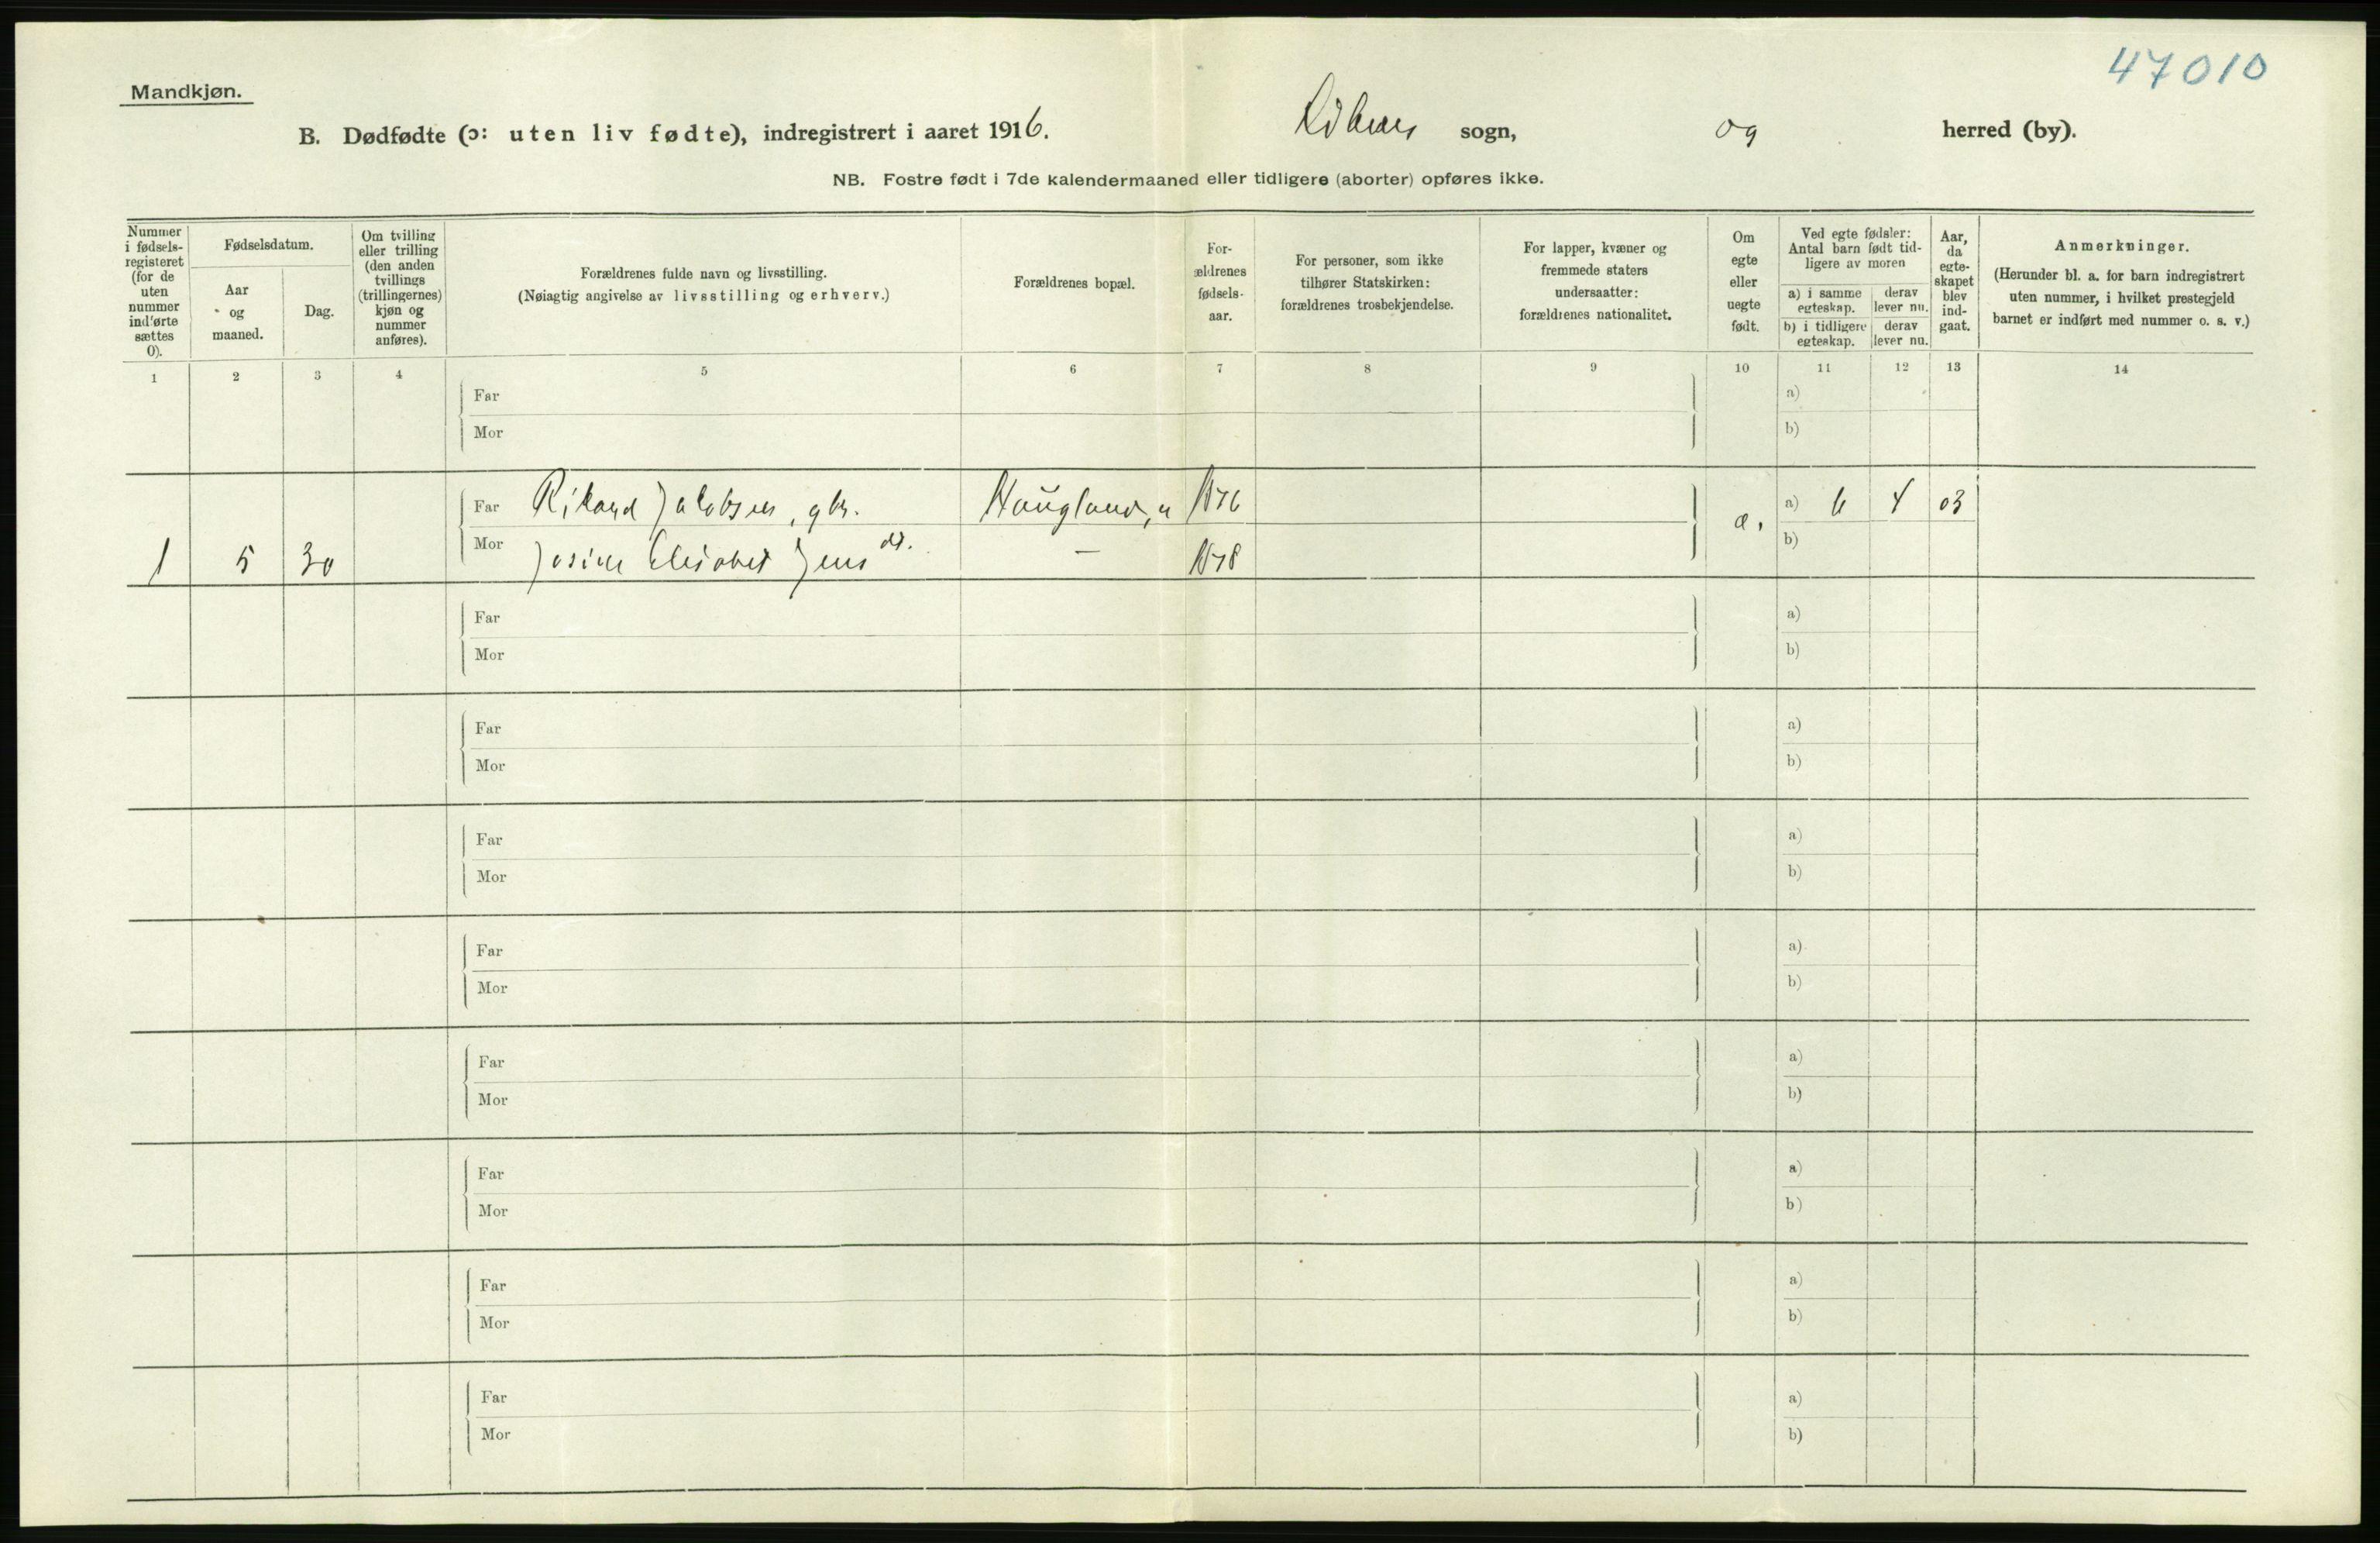 47010
Mandkjøn.
B. Dødfødte (ɔ: uten liv fødte), indregistrert i aaret 1916. sogn, og herred (by).
NB. Fostre født i 7de kalendermaaned eller tidligere (aborter) opføres ikke.
Nummer i fødsels-registeret (for de uten nummer indførte sættes 0).
Fødselsdatum.
Aar og maaned.
Dag.
Om tvilling eller trilling (den anden tvillings (trillingernes) kjøn og nummer anføres).
Forældrenes fulde navn og livsstilling.
(Nøiagtig angivelse av livsstilling og erhverv.)
Forældrenes bopæl.
For-ældrenes fødsels-aar.
For personer, som ikke tilhører Statskirken: forældrenes trosbekjendelse.
For lapper, kvæner og fremmede staters undersaatter: forældrenes nationalitet.
Om egte eller uegte født.
Ved egte fødsler: Antal barn født tid-ligere av moren
a) i samme egteskap. derav lever nu.
b) i tidligere egteskap. derav lever nu.
Aar, da egte-skapet blev ind-gaat.
Anmerkninger.
(Herunder bl. a. for barn indregistrert uten nummer, i hvilket prestegjeld barnet er indført med nummer o. s. v.)
1 2 3 4 5 6 7 8 9 10 11 12 13 14
Far a)
Mor b)
Far Rikard Jakobsen, gbr. Haugland, 1876 a) 6 4 03
1 5 30 Mor Josine Elisabet Jens dt. — 1878 b)
Far a)
Mor b)
Far a)
Mor b)
Far a)
Mor b)
Far a)
Mor b)
Far a)
Mor b)
Far a)
Mor b)
Far a)
Mor b)
Far a)
Mor b)